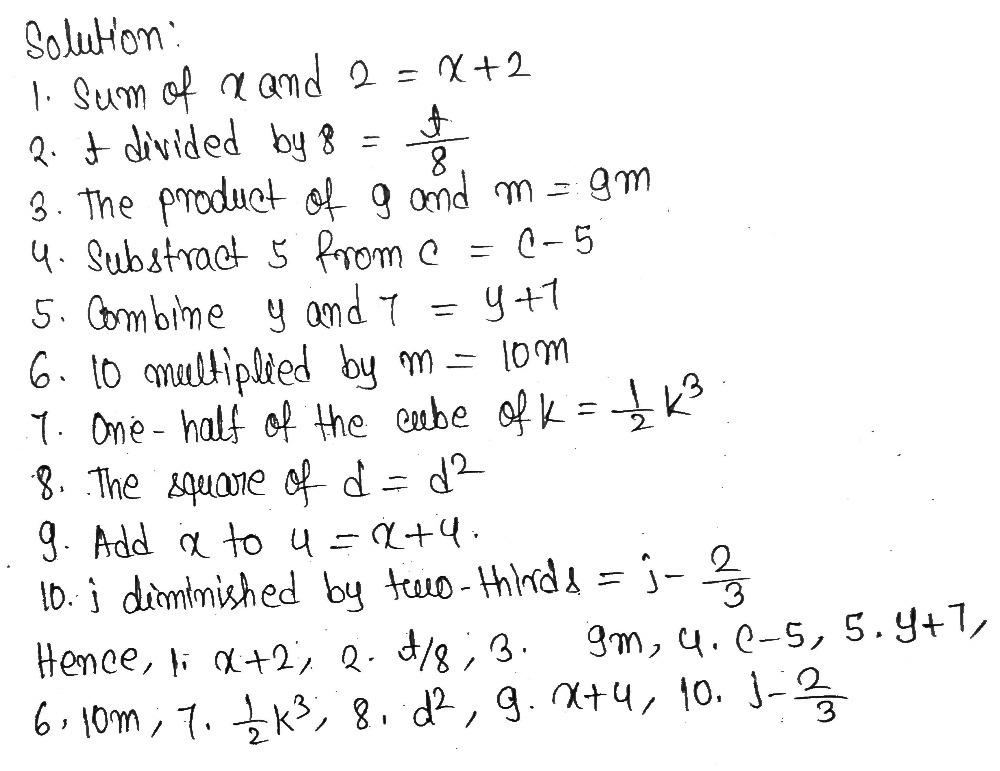 Solution:
1. Sum of x and 2 = x+2
2. t divided by 8 = t/8
3. The product of g and m = gm
4. Substract 5 from c = c-5
5. Combine y and 7 = y+7
6. 10 multiplied by m = 10m
7. One-half of the cube of k = 1/2 k³
8. The square of d = d²
9. Add x to 4 = x+4.
10. j diminished by two-thirds = j - 2/3
Hence, 1. x+2, 2. t/8, 3. gm, 4. c-5, 5. y+7,
6. 10m, 7. 1/2 k³, 8. d², 9. x+4, 10. j - 2/3